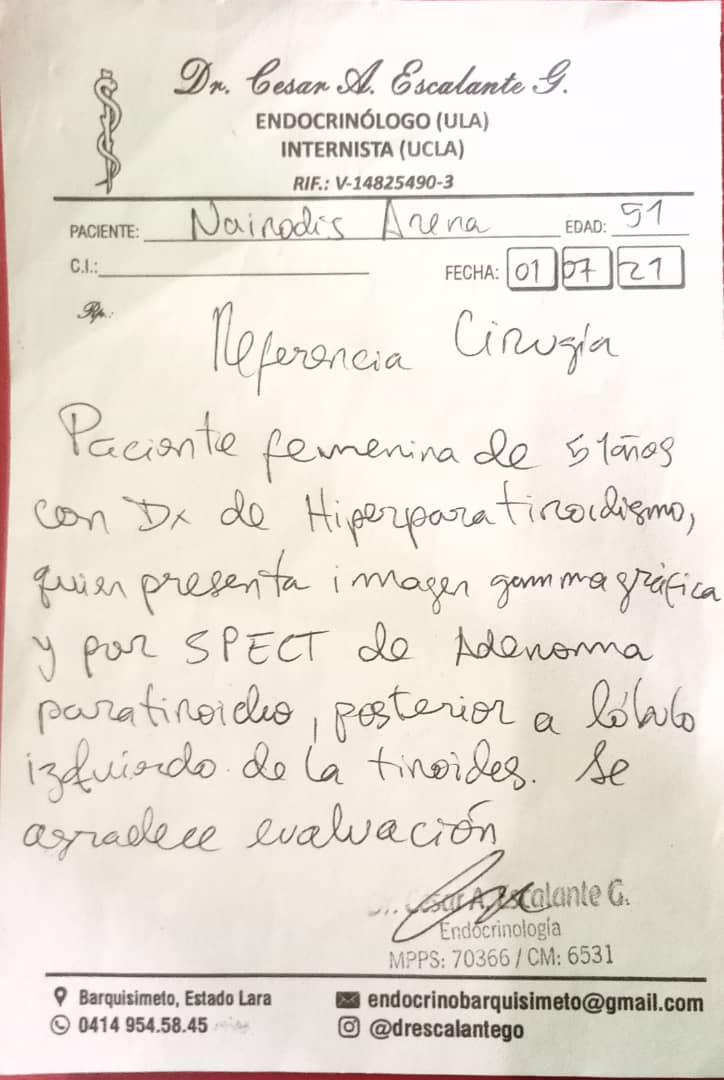 Dr. Cesar A. Escalante G.
ENDOCRINÓLOGO (ULA)
INTERNISTA (UCLA)
RIF.: V-14825490-3
PACIENTE: Nairodis Arena EDAD: 51
C.I.: FECHA: 01 07 21
Rp.:
Referencia Cirugía
Paciente femenina de 51 años
con Dx de Hiperparatiroidismo,
quien presenta imagen gammagráfica
y por SPECT de Adenoma
paratiroideo, posterior a lóbulo
izquierdo de la tiroides. Se
agradece evaluación
Cesar A. Escalante G.
Endocrinología
MPPS: 70366 / CM: 6531
Barquisimeto, Estado Lara
endocrinobarquisimeto@gmail.com
0414 954.58.45
@drescalantego